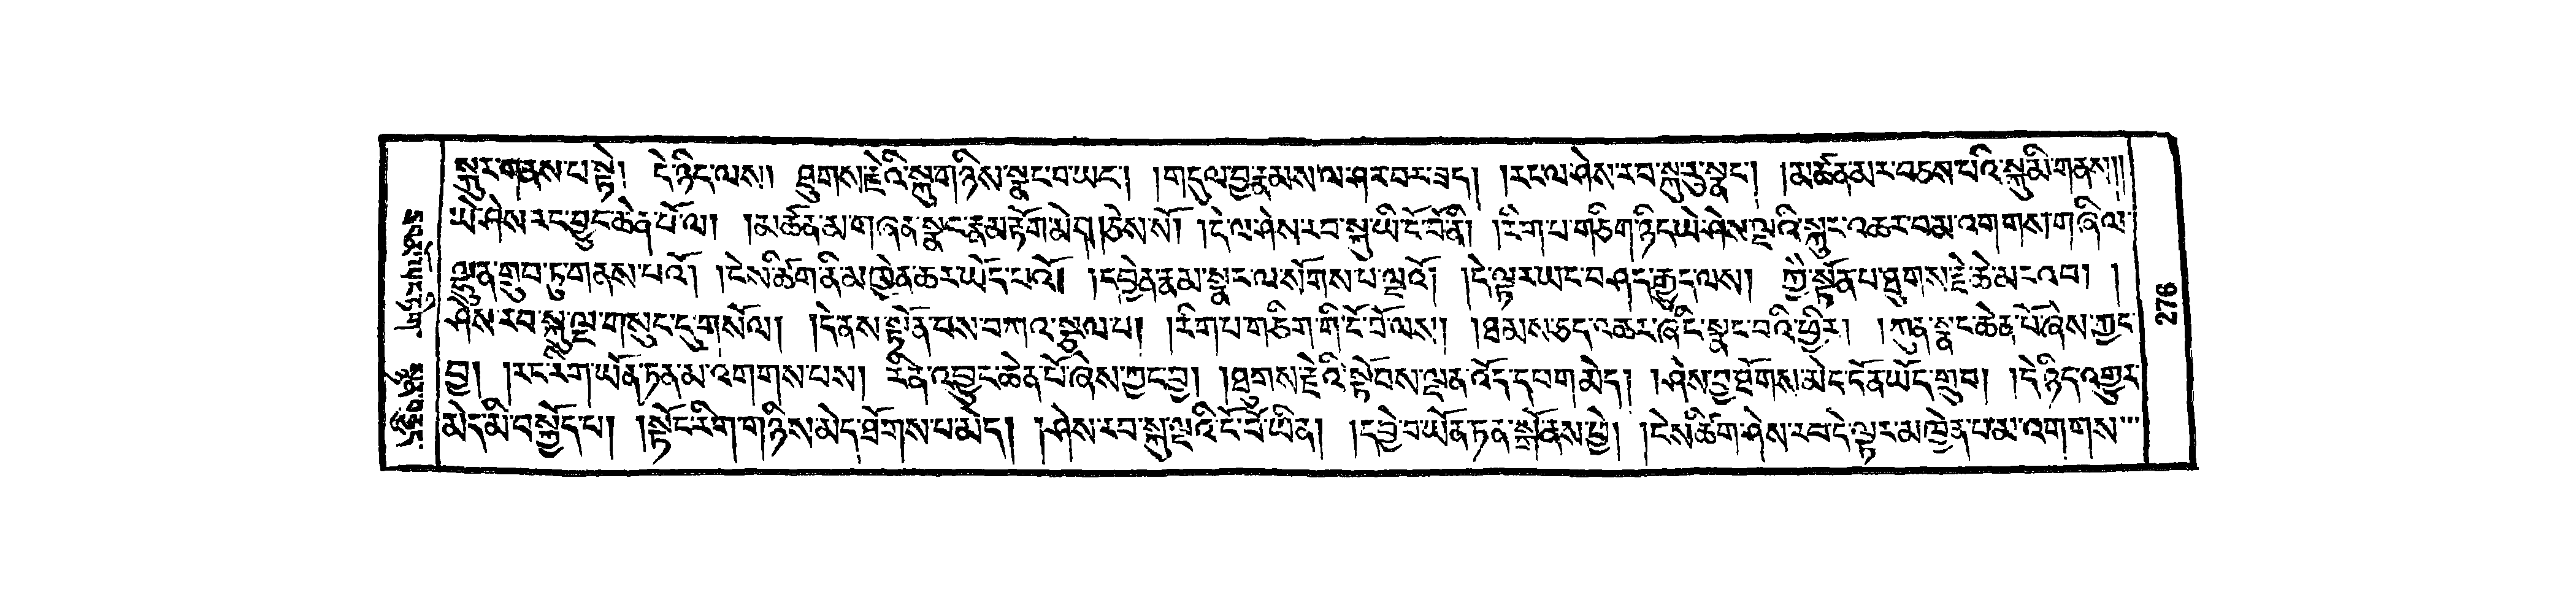 སྐུར་གནས་པ་སྟེ། དེ་ཉིད་ལས། ཐུགས་རྗེའི་སྐུ་གཉིས་སྣང་བ་ཡང་། །གདུལ་བྱ་རྣམས་ལ་ཤར་བར་ཟད། །རང་ལ་ཤེས་རབ་སྐུ་རུ་སྣང་། །མཚན་མར་བཅས་པའི་སྐུ་མི་གནས།།།
ཡེ་ཤེས་རང་བྱུང་ཆེན་པོ་ལ། །མཚན་མ་གཞན་སྣང་རྣམ་རྟོག་མེད། །ཅེས་སོ། །དེ་ལ་ཤེས་རབ་སྐུ་ཡི་ངོ་བོ་ནི། །རིག་པ་གཅིག་ཉིད་ཡེ་ཤེས་ལྔའི་སྐུར་འཆར་བམ་འགགས་གཞི་ལ་
ལྷུན་གྲུབ་ཏུ་གནས་པའོ། །ངེས་ཚིག་ནི་མ་ཁྱེན་ཆར་ཡོད་པའོ། །དབྱེ་ན་རྣམ་སྣང་ལ་སོགས་པ་ལྔའོ། །དེ་ལྟར་ཡང་བཤད་རྒྱུད་ལས། ཀྱཻ་སྟོན་པ་ཐུགས་རྗེ་ཆེ་མངའ་བ། །
ཤེས་རབ་སྐུ་ལྔ་གསུང་དུ་གསོལ། །དེ་ནས་སྟོན་པས་བཀའ་སྩལ་པ། །རིག་པ་གཅིག་གི་ངོ་བོ་ལས། །ཐམས་ཅད་འཆར་ཞིང་སྣང་བའི་ཕྱིར། །ཀུན་སྣང་ཆེན་པོ་ཞེས་ཀྱང་
བྱ། །རང་རིག་ཡོན་ཏན་མ་འགགས་པས། རིན་འབྱུང་ཆེན་པོ་ཞེས་ཀྱང་བྱ། །ཐུགས་རྗེའི་སྟོབས་ལྡན་འོད་དཔག་མེད། །ཤེས་བྱ་ཐོགས་མེད་དོན་ཡོད་གྲུབ། །དེ་ཉིད་འགྱུར་
མེད་མི་བསྐྱོད་པ། །སྟོང་རིག་གཉིས་མེད་ཐོགས་པ་མེད། །ཤེས་རབ་སྐུ་ལྔའི་ངོ་བོ་ཡིན། །དབྱེ་བ་ཡོན་ཏན་སྒོ་ནས་ཕྱེ། །ངེས་ཚིག་ཤེས་རབ་དེ་ལྟར་མཁྱེན་པ་མ་འགགས་
276